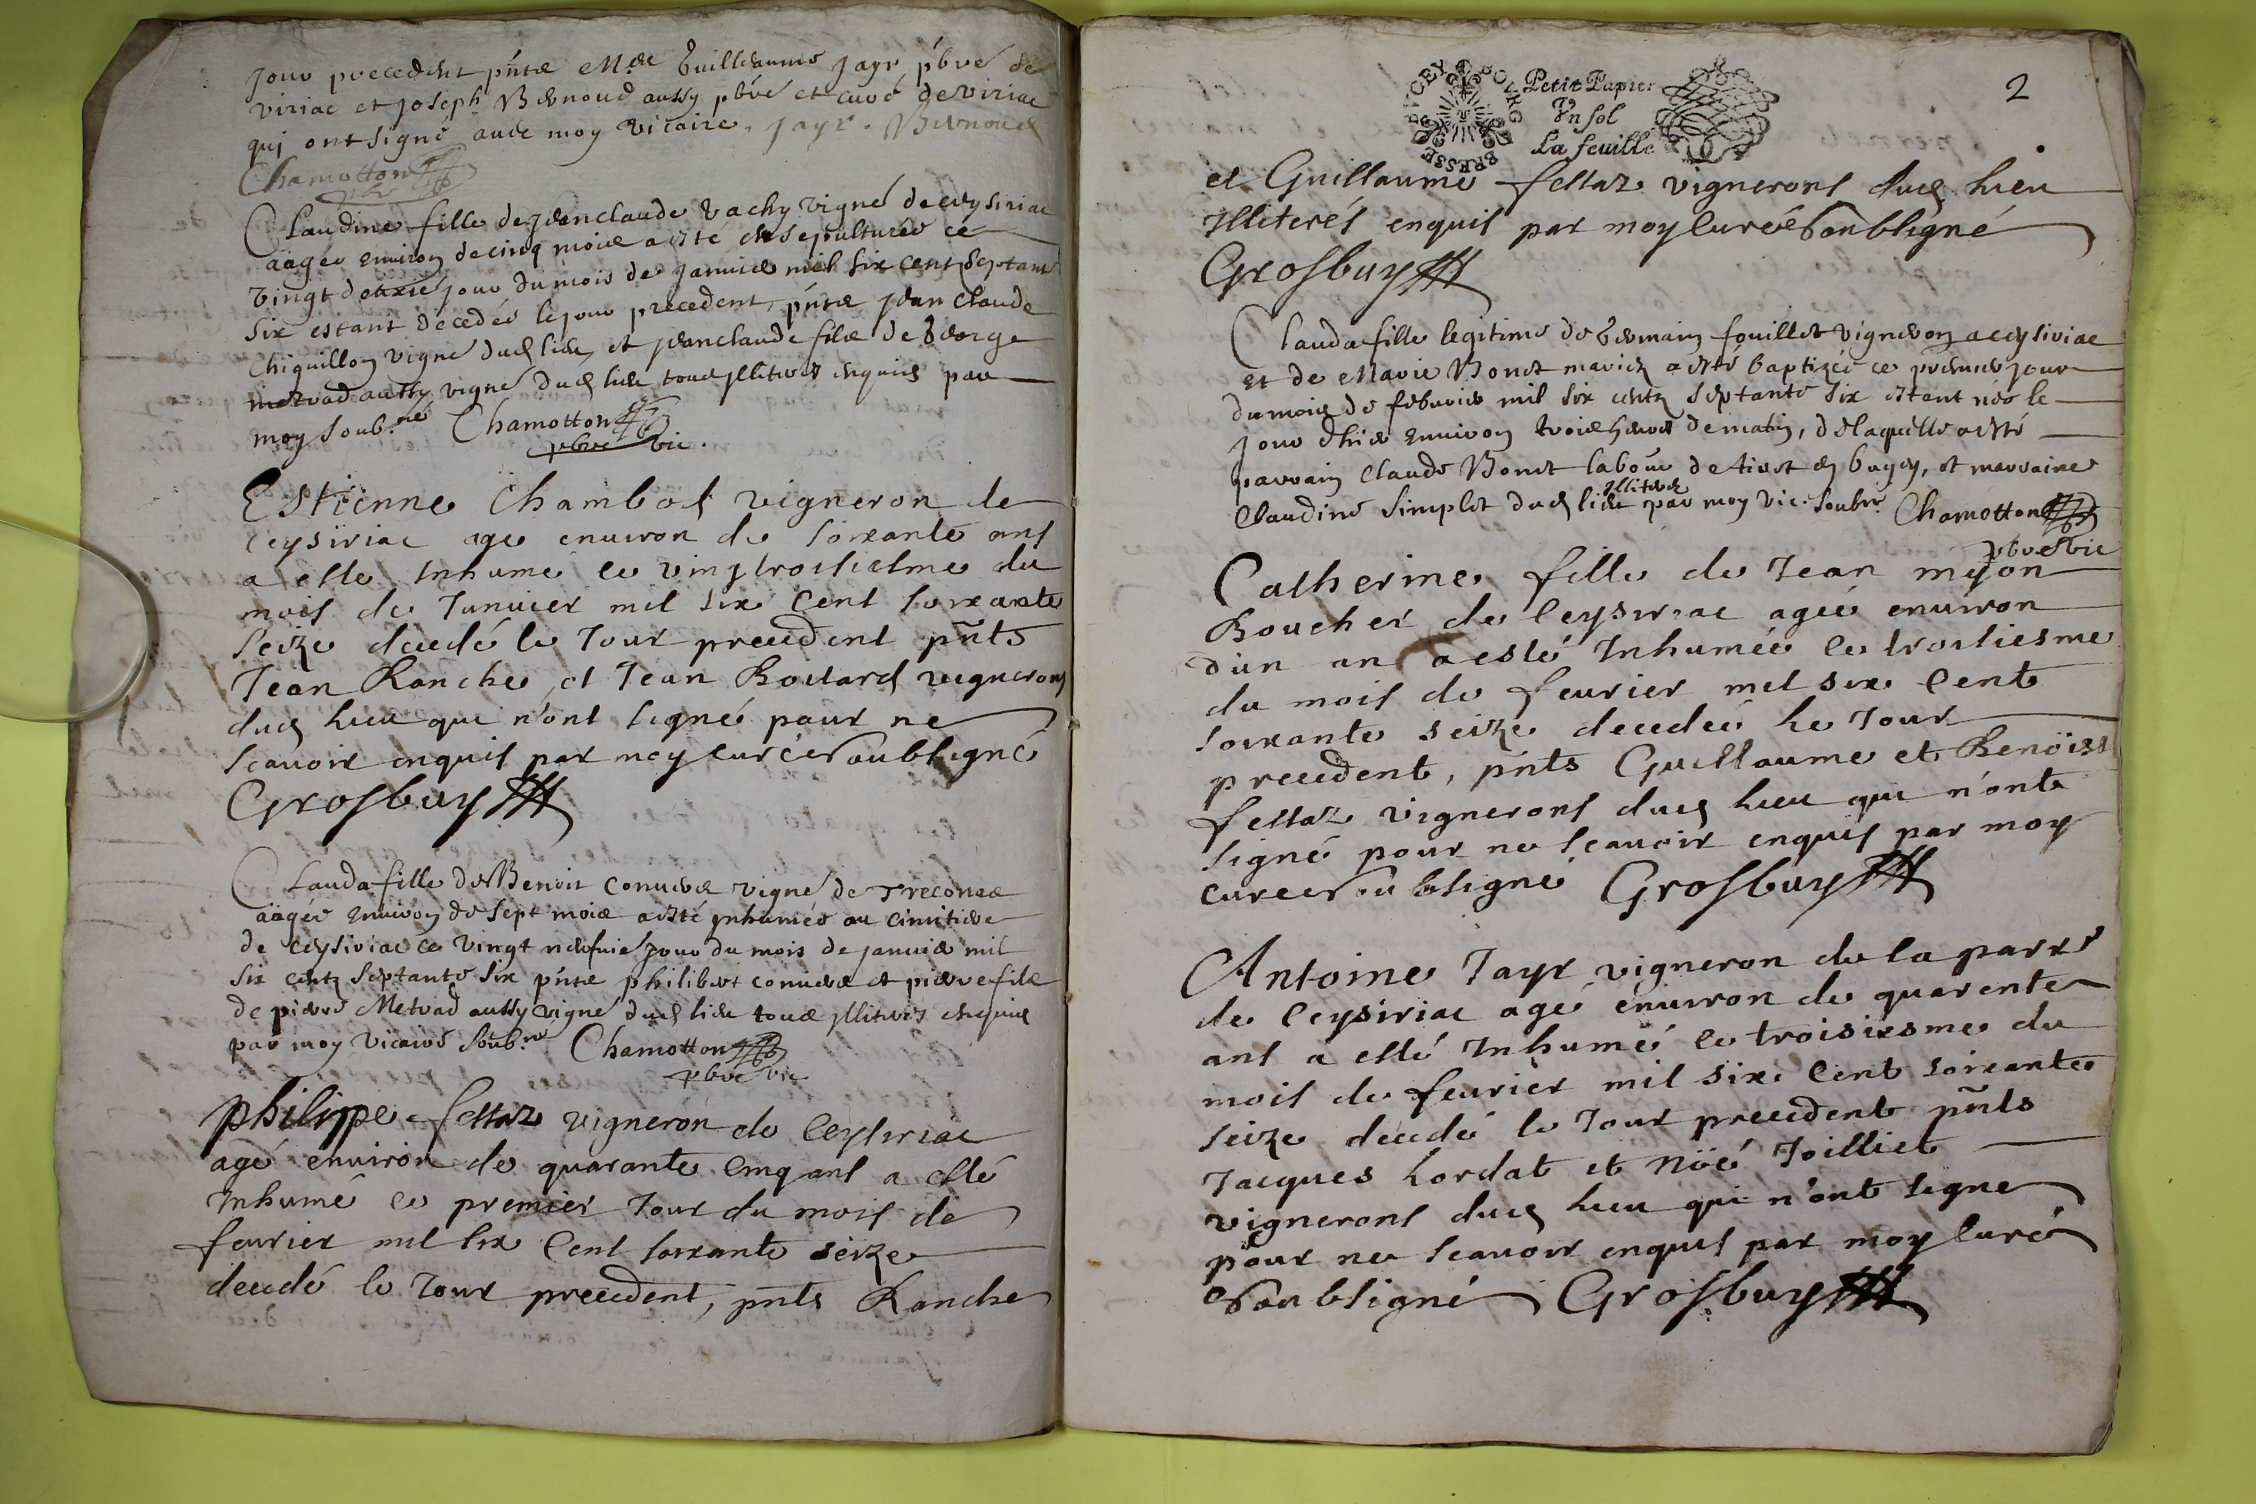 jour precedent pn̄ts Mre Guilleaume Jayr pb̄re de
viriac et joseph Bernoud aussy pb̄re et curé de viriac
qui ont signé avec moy vicaire. Jayr. Bernoud
Chamotton
pbr
Claudine fille de jean claude vachy vigné de ceysiriac
aagée environ de cinq mois a esté ensepulturée ce
vingt douxié jour du mois de janvier mil six cent septante
six estant decedée le jour precedent, pn̄ts jean claude
Chiquillon vigné dud lieu et jean claude fils de George
metrad aussy vigné dud lieu tous jlliterés enquis par
moy soub.né Chamotton
pbre vic.
Estienne Chambod vigneron de
Ceysiriac agé environ de soixante ans
a esté Inhumé ce vingtroisiesme du
mois de Janvier mil six cent soixante
seize decedé le Jour precedent pn̄ts
Jean Ranche et Jean Boutard vignerons
dud lieu qui n'ont signé pour ne
scavoir enquis par moy curé soubsigné
Grosbuy
Clauda fille de Benoit Convers vigné de Treconas
aagée environ de sept mois a esté jnhumée au cimitiere
de ceysiriac ce vingt neufvié jour du mois de janvier mil
six cents septante six pn̄ts philibert convers et pierre fils
de pierre Metrad aussy vigné dud lieu tous jlliterés enquis
par moy vicaire soub.né Chamotton
pbre vic
Philippe fettaz vigneron de Ceysiriac
agé environ de quarante cinq ans a esté
Inhumé ce premier Jour du mois de
fevrier mil six Cent soixante seize
decedé le Jour precedent, pn̄ts Ranche
BOVRG BRESSE BVCEY
Petit Papier
Vn sol
La feuille
2
et Guillaume fettaz vignerons dud lieu
Illiterés enquis par moy curé soubsigné
Grosbuy
Clauda fille legitime de Germain fouillet vigneron a ceysiriac
et de Marie Bonet mariez a esté baptizée ce premier jour
du mois de febvrier mil six cents septante six estant née le
jour d'hier environ trois heures de matin, de laquelle a esté
parrain Claude Bonet labour de en bugey, et marraine
jlliterés
Claudine Simplet dud lieu par moy vic. soubné. Chamotton
pbre vic
Catherine fille de Jean myon
Boucher de Ceysiriac agée environ
d'un an a esté Inhumée ce troisiesme
du mois de fevrier mil six Cent
soixante seize decedée le Jour
precedent, pn̄ts Guillaume et Benoist
fettaz vignerons dud lieu qui n'ont
signé pour ne scavoir enquis par moy
curé soubsigné Grosbuy
Antoine Jayr vigneron de la parré
de Ceysiriac agé environ de quarente
ans a esté Inhumé ce troisiesme du
mois de fevrier mil six Cent soixante
seize decedé le Jour precedent pn̄ts
Jacques Lordat et Noé Joilliet
vignerons dud lieu qui n'ont signe
pour ne scavoir enquis par moy Curé
soubsigné Grosbuy